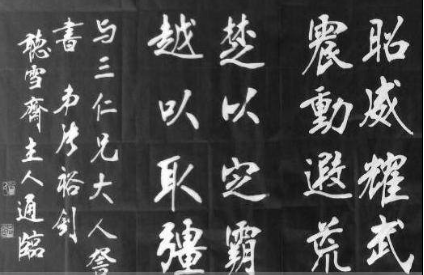 昭威耀武
震動遐荒
楚以定霸
越以取彊
与三仁兄大人詧
書 弟張裕釗
聽雪齋主人通臨